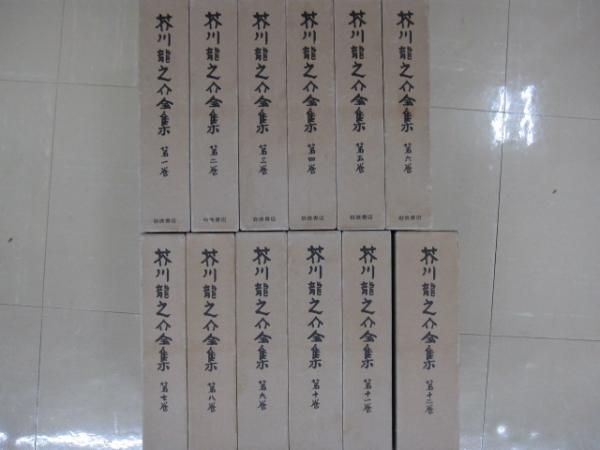 芥川龍之介全集 第一巻 岩波書店
芥川龍之介全集 第二巻 岩波書店
芥川龍之介全集 第三巻 岩波書店
芥川龍之介全集 第四巻 岩波書店
芥川龍之介全集 第五巻 岩波書店
芥川龍之介全集 第六巻 岩波書店
芥川龍之介全集 第七巻
芥川龍之介全集 第八巻
芥川龍之介全集 第九巻
芥川龍之介全集 第十巻
芥川龍之介全集 第十一巻
芥川龍之介全集 第十二巻